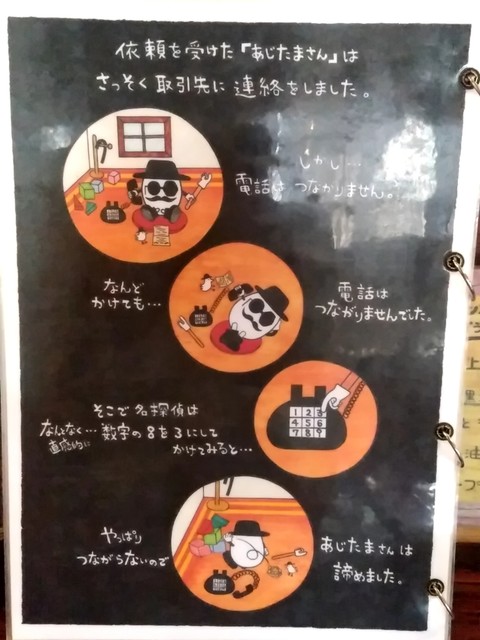 依頼を受けた『あじたまさん』は
さっそく取引先に連絡をしました。
しかし…
電話は つながりません。
なんど
かけても…
電話は
つながりませんでした。
1 2 3
4 5 6
7 8 9
そこで名探偵は
なんとなく…数字の8を3にして
直感的に
かけてみると…
やっぱり
つながらないので
あじたまさんは
諦めました。